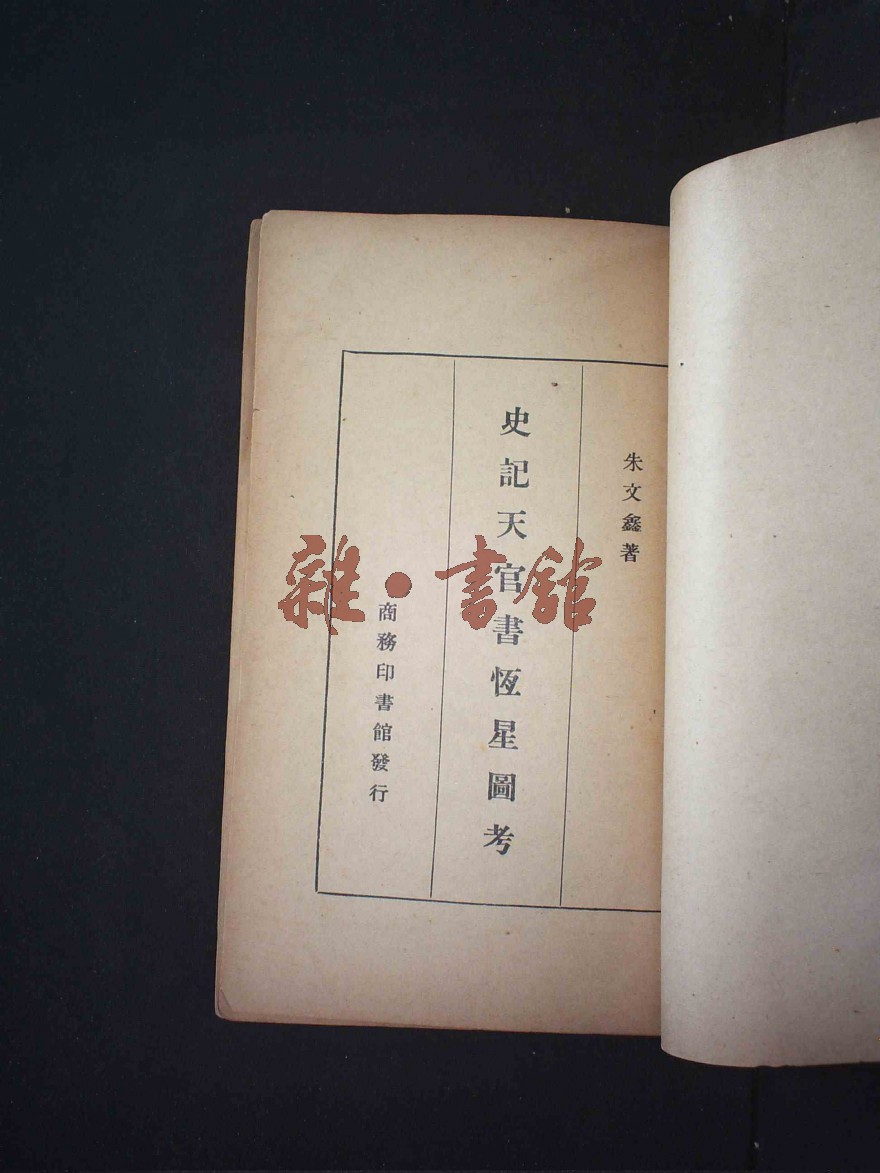 朱文鑫著
史記天官書恆星圖考
商務印書館發行
雜·書舘